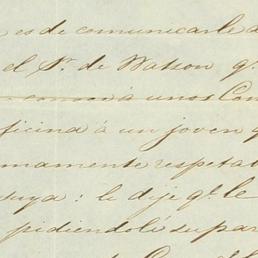 es de comunicarle a
el Sr. de Watson q.
conoció à unos Com
ficina à un joven q
mamente respetab
suya: le dije q.e le
pidiendole su par